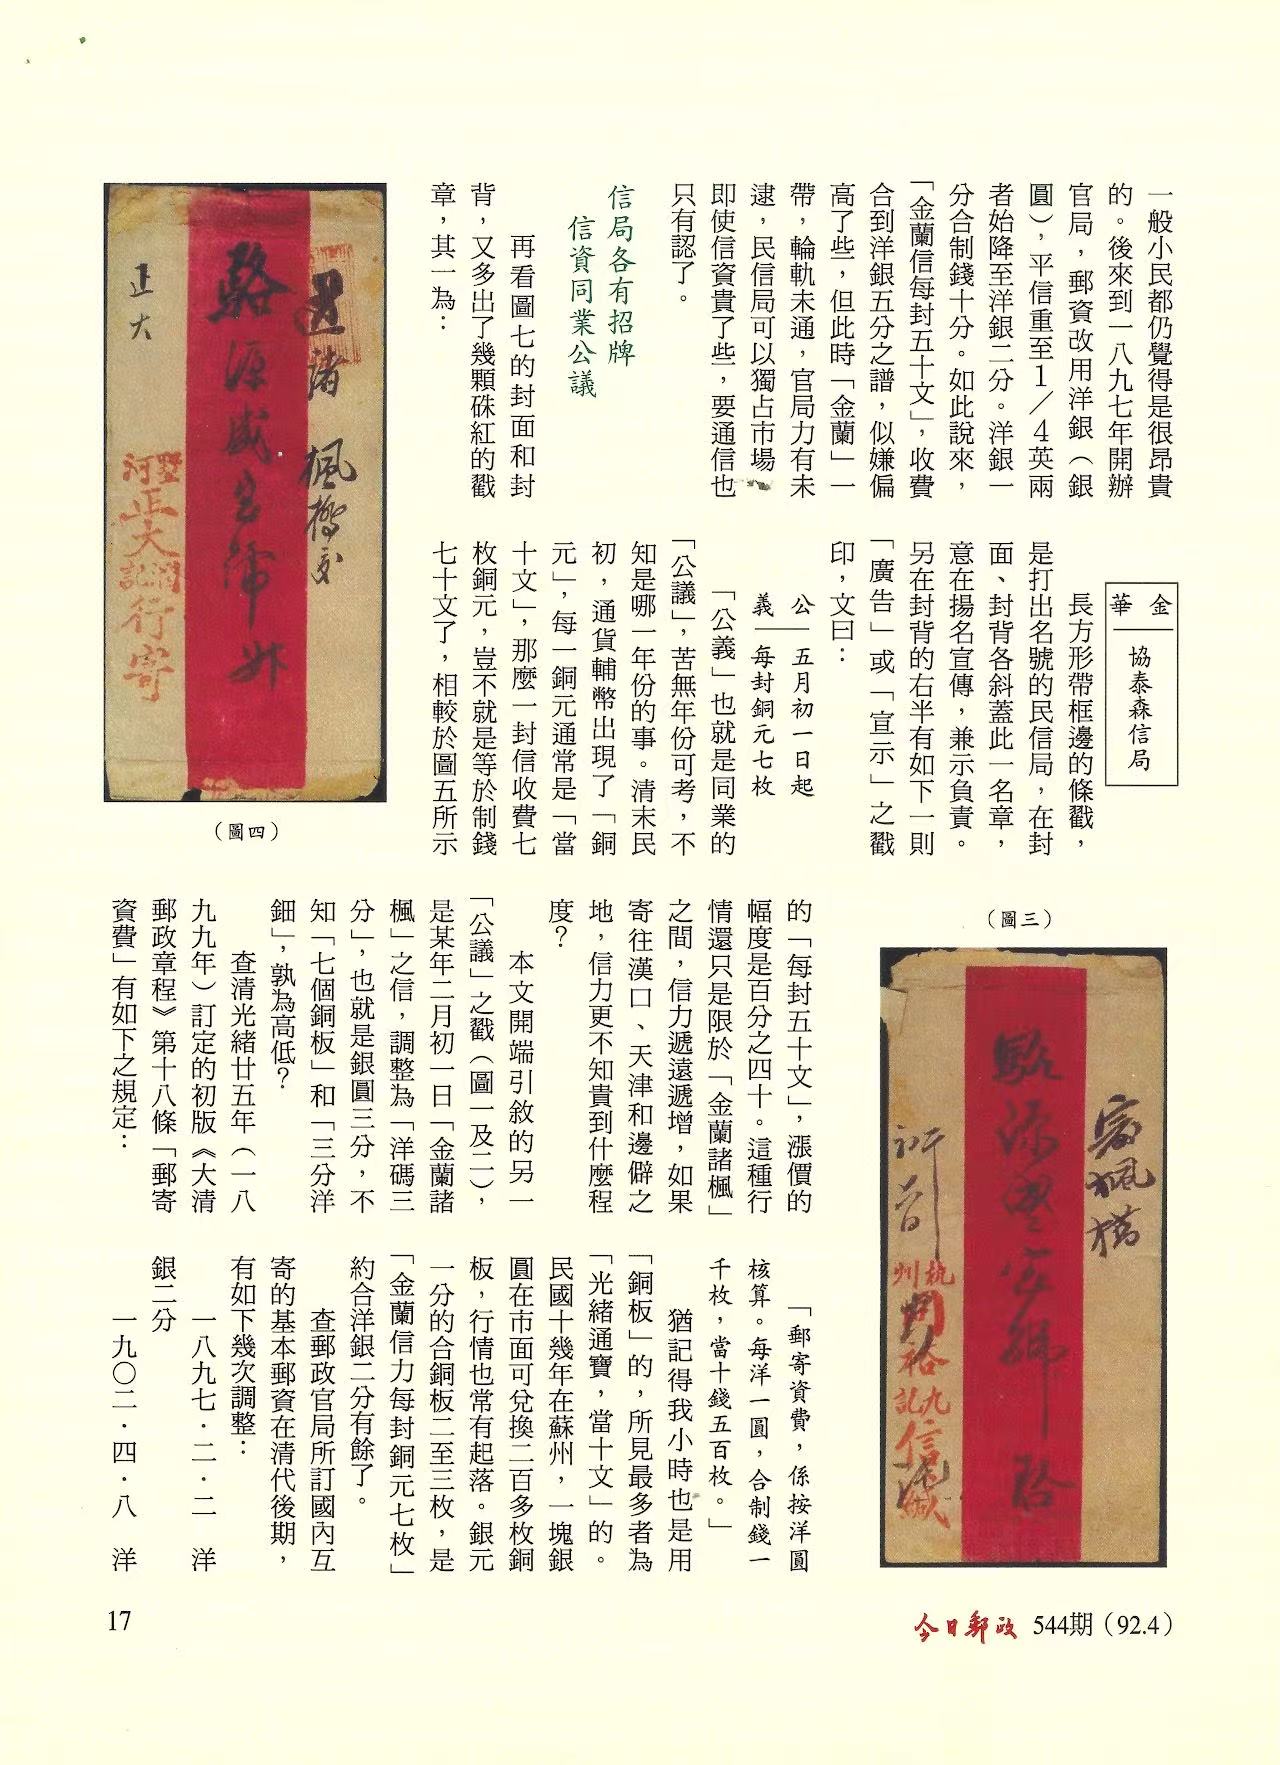 一般小民都仍覺得是很昂貴
的。後來到一八九七年開辦
官局，郵資改用洋銀（銀
圓），平信重至1／4英兩
者始降至洋銀二分。洋銀一
分合制錢十分。如此說來，
「金蘭信每封五十文」，收費
合到洋銀五分之譜，似嫌偏
高了些，但此時「金蘭」一
帶，輪軌未通，官局力有未
逮，民信局可以獨占市場，
即使信資貴了些，要通信也
只有認了。
信局各有招牌
信資同業公議
再看圖七的封面和封
背，又多出了幾顆硃紅的戳
章，其一為：
金華
協泰森信局
長方形帶框邊的條戳，
是打出名號的民信局，在封
面、封背各斜蓋此一名章，
意在揚名宣傳，兼示負責。
另在封背的右半有如下一則
「廣告」或「宣示」之戳
印，文曰：
公｜五月初一日起
義｜每封銅元七枚
「公義」也就是同業的
「公議」，苦無年份可考，不
知是哪一年份的事。清末民
初，通貨輔幣出現了「銅
元」，每一銅元通常是「當
十文」，那麼一封信收費七
枚銅元，豈不就是等於制錢
七十文了，相較於圖五所示
的「每封五十文」，漲價的
幅度是百分之四十。這種行
情還只是限於「金蘭諸楓」
之間，信力遞遠遞增，如果
寄往漢口、天津和邊僻之
地，信力更不知貴到什麼程
度？
本文開端引敘的另一
「公議」之戳（圖一及二），
是某年二月初一日「金蘭諸
楓」之信，調整為「洋碼三
分」，也就是銀圓三分，不
知「七個銅板」和「三分洋
鈿」，孰為高低？
查清光緒廿五年（一八
九九年）訂定的初版《大清
郵政章程》第十八條「郵寄
資費」有如下之規定：
「郵寄資費，係按洋圓
核算。每洋一圓，合制錢一
千枚，當十錢五百枚。」
猶記得我小時也是用
「銅板」的，所見最多者為
「光緒通寶，當十文」的。
民國十幾年在蘇州，一塊銀
圓在市面可兌換二百多枚銅
板，行情也常有起落。銀元
一分的合銅板二至三枚，是
「金蘭信力每封銅元七枚」
約合洋銀二分有餘了。
查郵政官局所訂國內互
寄的基本郵資在清代後期，
有如下幾次調整：
一八九七．二．二　洋
銀二分
一九〇二．四．八　洋
駱源
正大
墅河正大潤記行寄
（圖四）
（圖三）
駱源豐寶號　啓
杭州周裕九記信緘
今日郵政 544期（92.4）
17